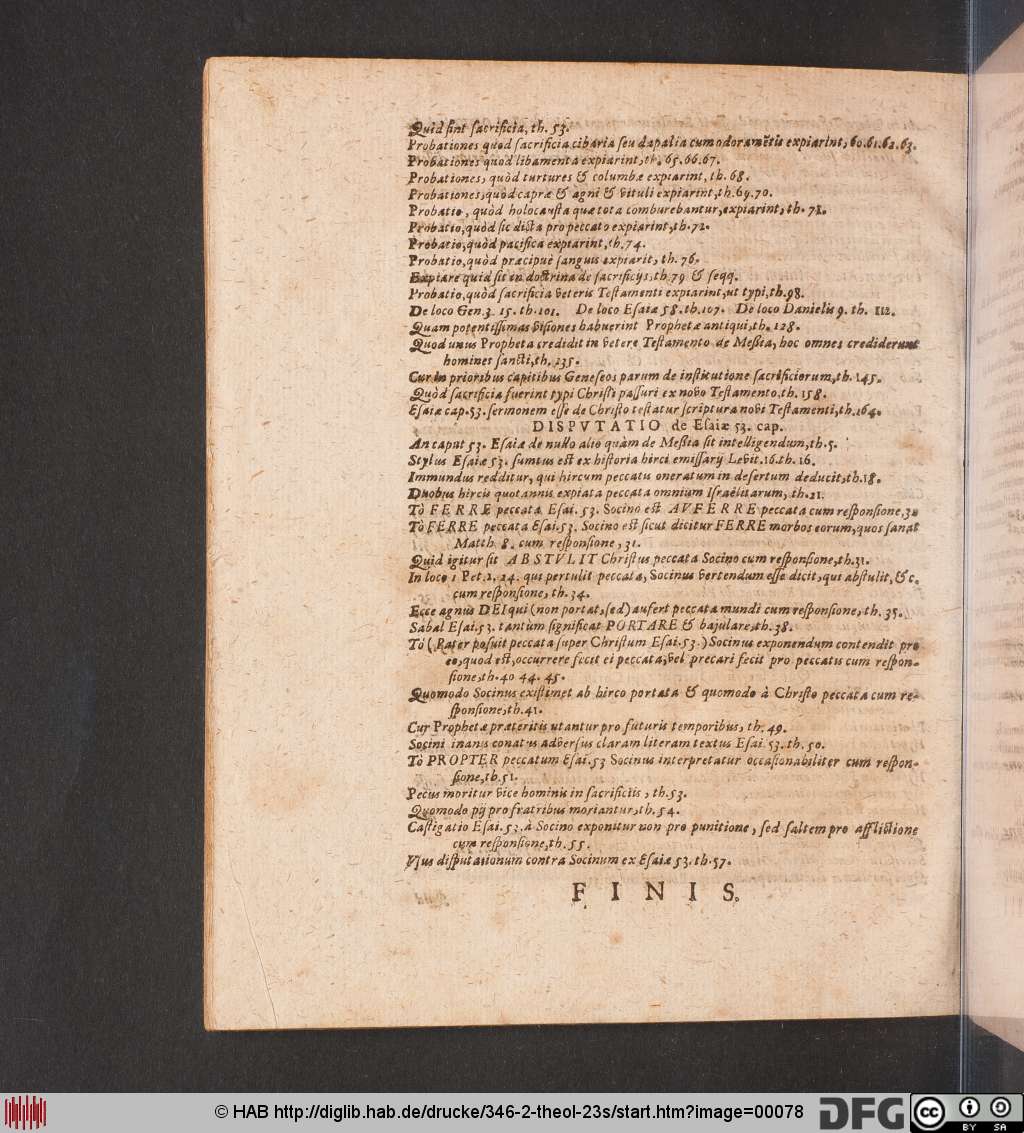 Quid sint sacrificia, th. 53.
Probationes quod sacrificia cibaria seu dapalia cum odoramētis expiarint, 60.61.62.63.
Probationes quod libamenta expiarint, th. 65.66.67.
Probationes, quòd turtures & columbæ expiarint, th. 68.
Probationes, quòd capræ & agni & vituli expiarint, th. 69.70.
Probatio, quòd holocausta quæ tota comburebantur, expiarint, th. 71.
Probatio, quòd sic dicta pro peccato expiarint, th. 72.
Probatio, quòd pacifica expiarint, th. 74.
Probatio, quòd præcipuè sanguis expiarit, th. 76.
Expiare quid sit in doctrina de sacrificijs, th. 79 & seqq.
Probatio, quòd sacrificia veteris Testamenti expiarint, ut typi, th. 98.
De loco Gen. 3. 15. th. 101. De loco Esaiæ 58. th. 107. De loco Danielis 9. th. 112.
Quam potentissimas visiones habuerint Prophetæ antiqui, th. 128.
Quod unus Propheta credidit in vetere Testamento de Messia, hoc omnes crediderunt
homines sancti, th. 135.
Cur in prioribus capitibus Geneseos parum de institutione sacrificiorum, th. 145.
Quòd sacrificia fuerint typi Christi passuri ex novo Testamento. th. 158.
Esaiæ cap. 53. sermonem esse de Christo testatur scriptura novi Testamenti, th. 164.
DISPVTATIO de Esaiæ 53. cap.
An caput 53. Esaiæ de nullo alio quàm de Messia sit intelligendum, th. 5.
Stylus Esaiæ 53. sumtus est ex historia hirci emissarij Levit. 16. th. 16.
Immundus redditur, qui hircum peccatis oneratum in desertum deducit, th. 18.
Duobus hircis quotannis expiata peccata omnium Israëlitarum, th. 21.
Tò FERRE peccata Esai. 53. Socino est AVFERRE peccata cum responsione, 30
Tò FERRE peccata Esai. 53. Socino est sicut dicitur FERRE morbos eorum, quos sanat
Matth. 8. cum responsione, 31.
Quid igitur sit ABSTVLIT Christus peccata Socino cum responsione, th. 31.
In loco 1 Pet. 2. 24. qui pertulit peccata, Socinus vertendum esse dicit, qui abstulit, & c.
cum responsione, th. 34.
Ecce agnus DEI qui (non portat, sed) aufert peccata mundi cum responsione, th. 35.
Sabal Esai. 53. tantùm significat PORTARE & bajulare, th. 38.
Tò (Pater posuit peccata super Christum Esai. 53.) Socinus exponendum contendit pro
eo, quod est, occurrere fecit ei peccata, vel precari fecit pro peccatis cum respon-
sione, th. 40 44. 45.
Quomodo Socinus existimet ab hirco portata & quomodo à Christo peccata cum re-
sponsione, th. 41.
Cur Prophetæ præteritis utantur pro futuris temporibus, th. 49.
Socini inanis conatus adversus claram literam textus Esai. 53. th. 50.
Tò PROPTER peccatum Esai. 53 Socinus interpretatur occasionabiliter cum respon-
sione, th. 51.
Pecus moritur vice hominis in sacrificiis, th. 53.
Quomodo pij pro fratribus moriantur, th. 54.
Castigatio Esai. 53. à Socino exponitur non pro punitione, sed saltem pro afflictione
cum responsione, th. 55.
Vsus disputationum contra Socinum ex Esaiæ 53. th. 57.
FINIS.
© HAB http://diglib.hab.de/drucke/346-2-theol-23s/start.htm?image=00078
DFG
cc BY SA